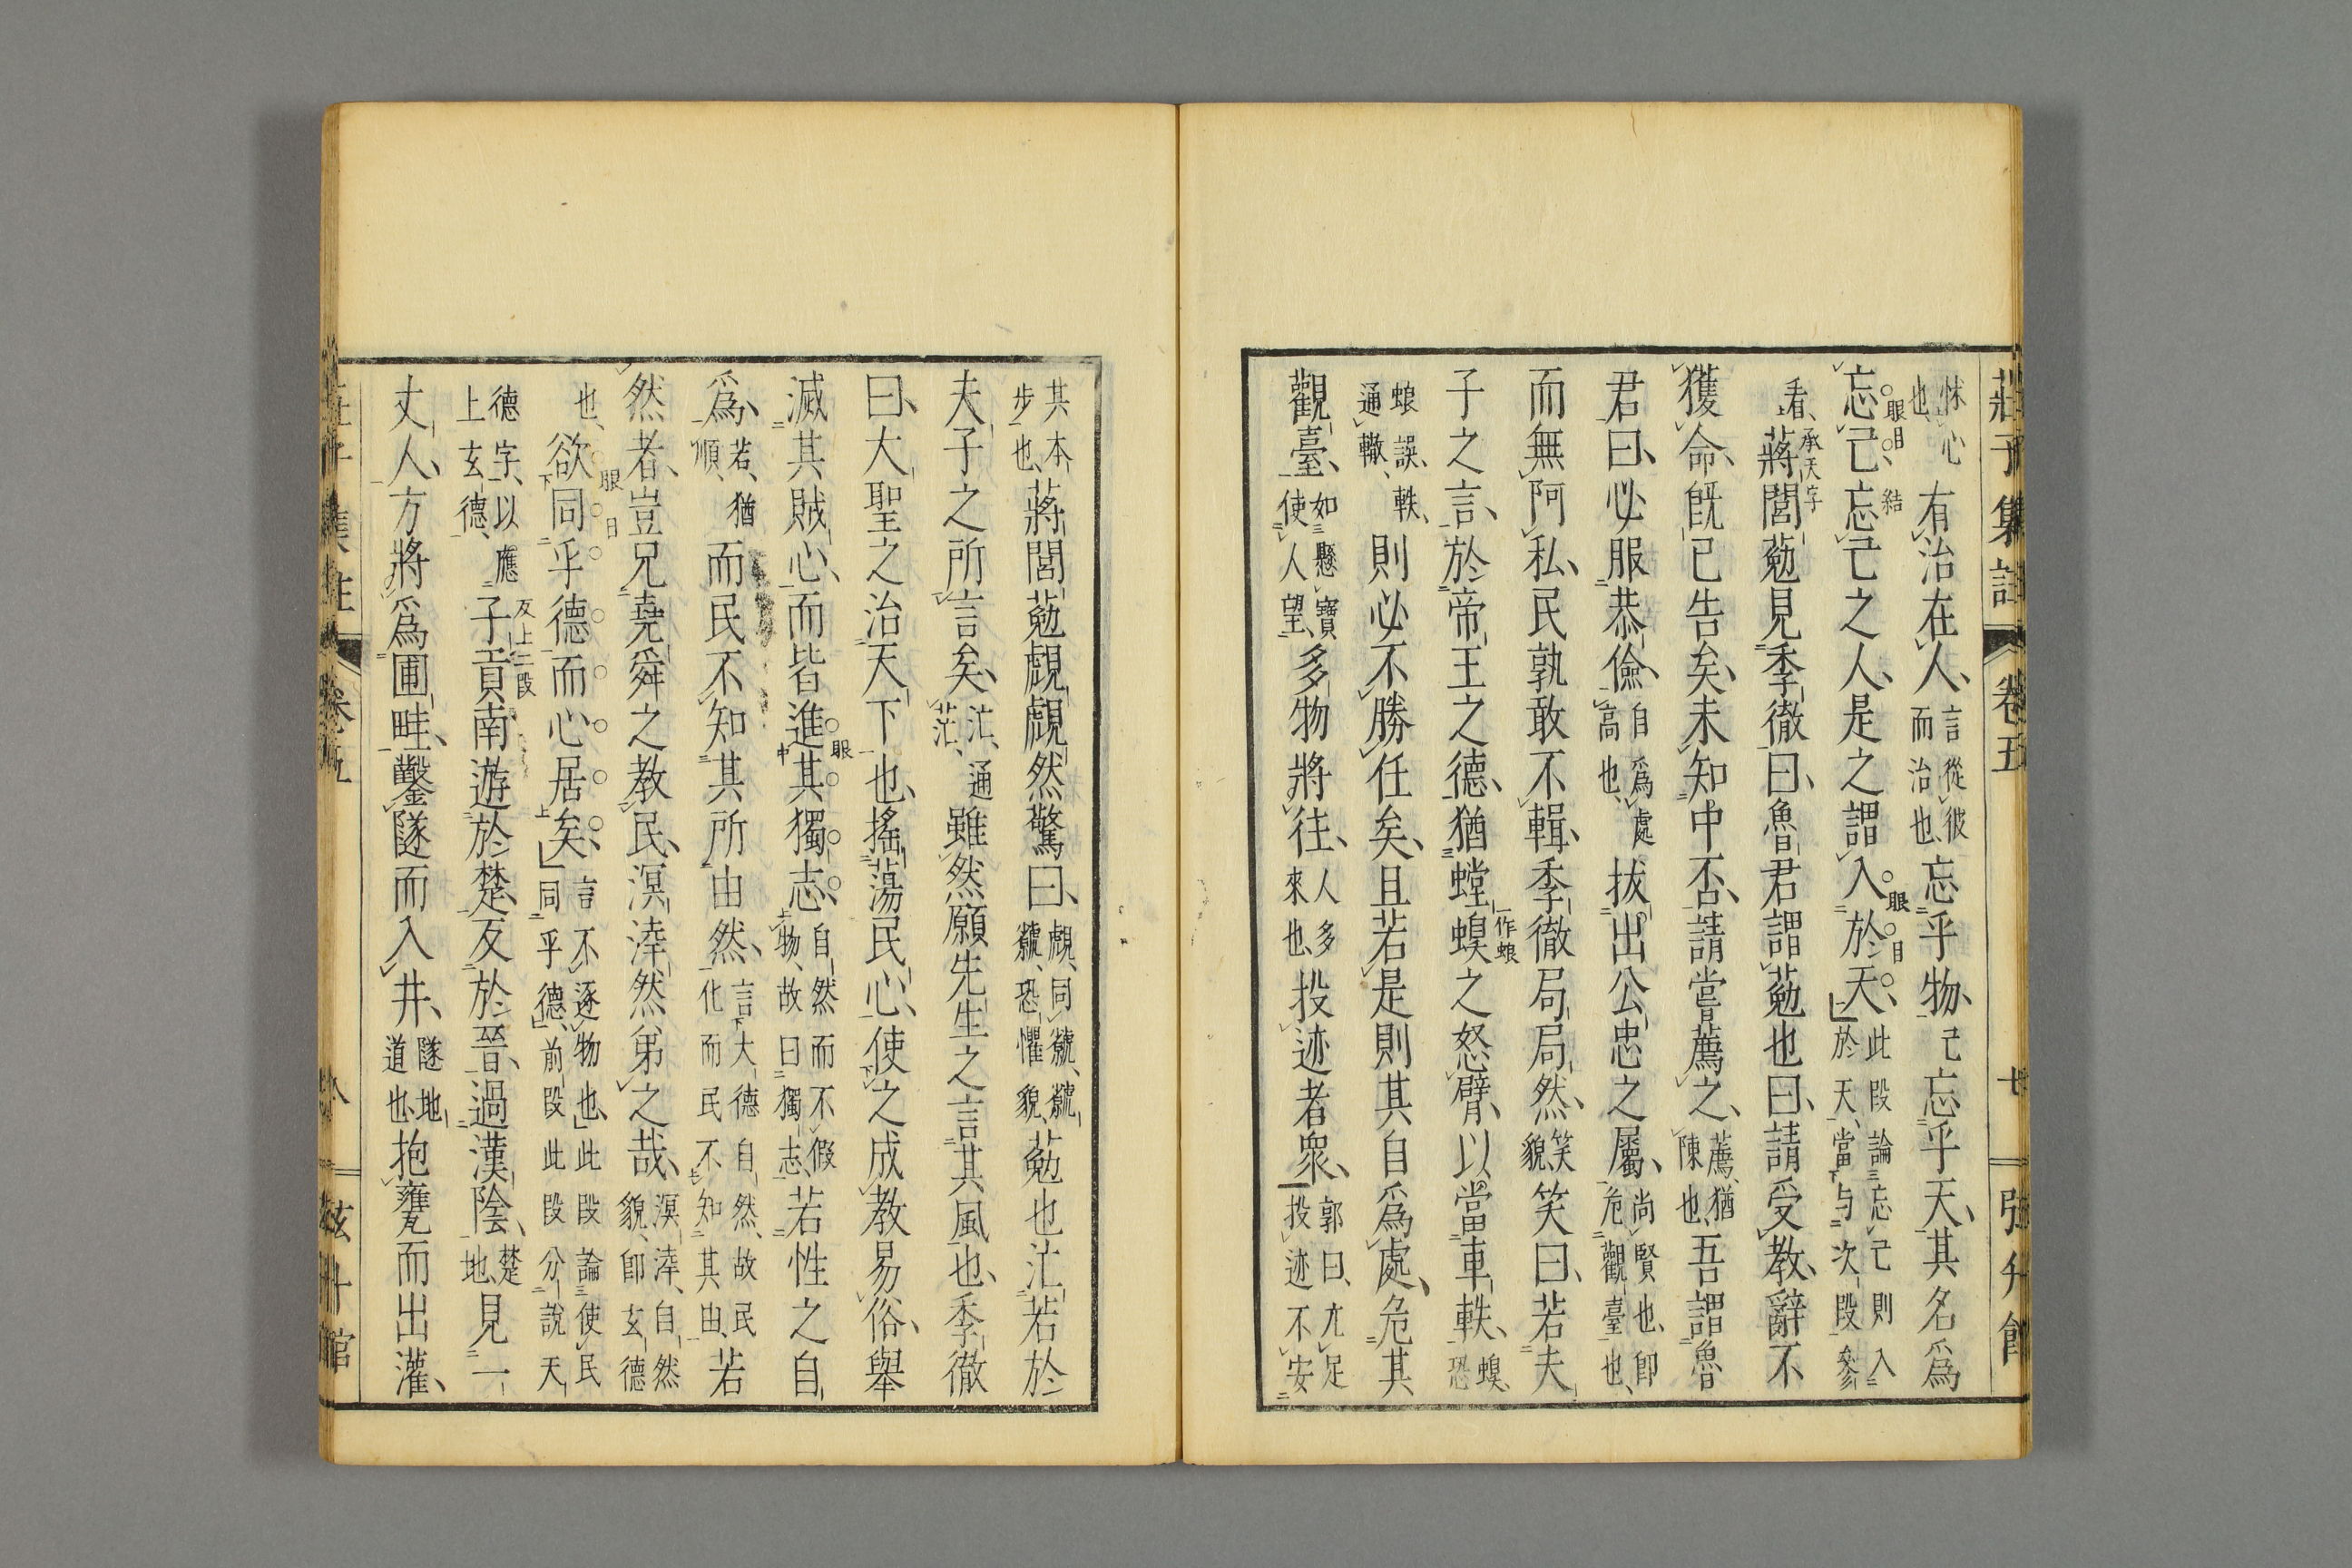 莊子集註 卷五 七 弢升館
怵心也、有治在人、言從彼而治也、忘乎物、己忘乎天、其名爲
忘己、忘己之人、是之謂入於天、此段論忘己則入於天、當与次段參
看、蔣閭葂見季徹曰、魯君謂葂也曰、請受教、辭不
獲命、旣已告矣、未知中否、請嘗薦之、薦、猶陳也、吾謂魯
君曰、必服恭儉、自爲處高也、拔出公忠之屬、尚賢也、卽危觀臺也、
而無阿私、民孰敢不輯、季徹局局然、笑貌笑曰、若夫
子之言、於帝王之德、猶螳螂之怒臂、以當車軼、螂、恐
蜋誤、軼、通轍、則必不勝任矣、且若是則其自爲處、危其
觀臺、如懸寶使人望、多物將往、人多來也、投迹者衆、郭曰、亢足投迹不安
其本步也、蔣閭葂覤覤然驚曰、覤、同虩、虩虩、恐懼貌、葂也汒若於
夫子之所言矣、汒、通茫、雖然願先生之言其風也、季徹
曰、大聖之治天下也、搖蕩民心、使之成教易俗、舉
滅其賊心、而皆進其獨志、自然而不假物、故曰獨志、若性之自
爲、若、猶順、而民不知其所由然、言大德自然、故民化而民不知其由、若
然者、豈兄堯舜之教民、溟涬然弟之哉、溟涬、自然貌、卽玄德
也、欲同乎德而心居矣、言不逐物也、此段論使民同乎德、前段此段分說天
德字、以應上玄德、子貢南遊於楚、反於晉、過漢陰、楚地、見一
丈人、方將爲圃畦、鑿隧而入井、隧地道也、抱甕而出灌、